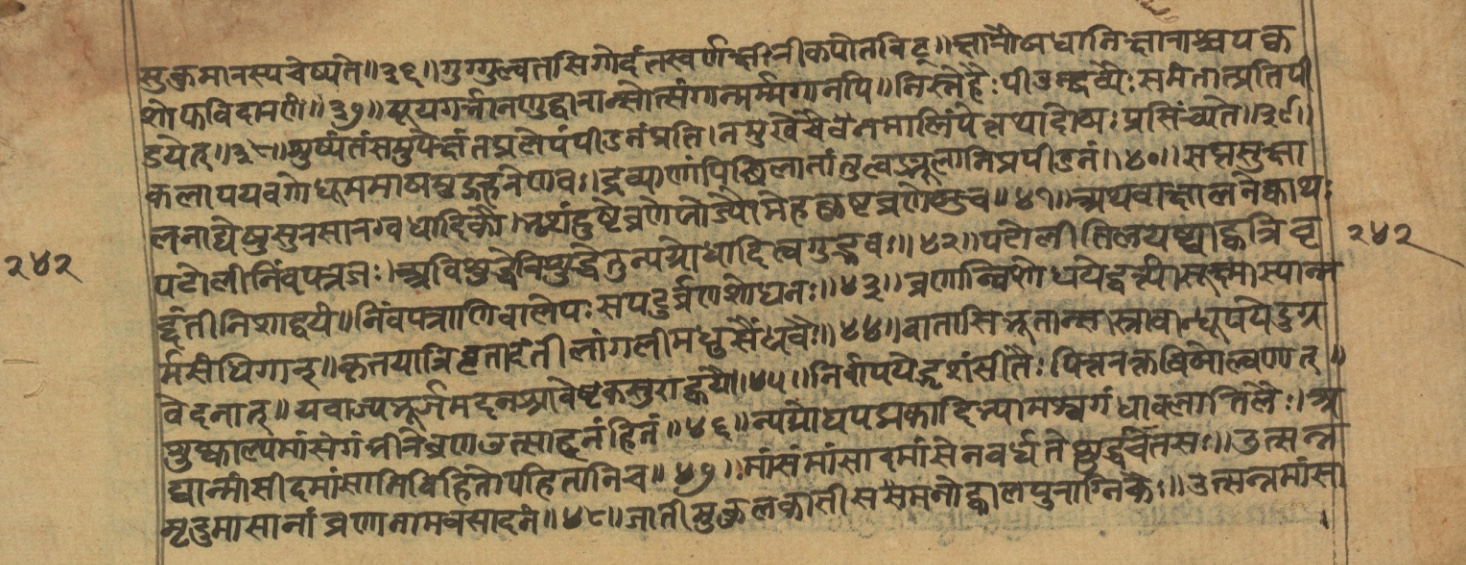 सुकुमारस्य चेष्यते॥३६॥गुग्गुल्वतसिगोदंतस्वर्णक्षीरीकपोतविट्॥क्षारौषधानिक्षाराश्चपक्व
शोफविदारणं॥३७॥पूयगर्भानणुद्वारान्सोत्संगान्मर्मगानपि॥निस्नेहैः पीडनद्रव्यैः समंतात्प्रतिपी
डयेत्॥३८॥शुष्यंतंसमुपेक्षंतप्रलेपंपीडनंप्रति।नमुखेचैवैनमालिंपेत्तथादोषः प्रसिंच्यते॥३९॥
कलापयवगोधूममाषमुद्गहरेणवः।द्रव्याणांपिछिलानांतुत्वङ्मूलानिप्रपीडनं॥४०॥सप्तसुक्षा
लनाद्येषुसुरसारग्वधादिकौ।भृशंदुष्टेव्रणेयोज्यौमेहकुष्टव्रणेषुच॥४१॥अथवाक्षालनंक्वाथः
पटोलीनिंबपत्रजः।अविशुद्धेविशुद्धेतुन्यग्रोधादित्वगुद्भवः॥४२॥पटोलीतिलयष्ट्याह्वत्रिवृ
द्दंतीनिशाद्वयं॥निंबपत्राणिचालेपः सपटुर्व्रणशोधनः॥४३॥व्रणान्विशोधयेद्वर्त्त्यासूक्ष्मास्यान्म
र्मसंधिगान्॥कृतयात्रिवृतादंतीलांगलीमधुसैंधवैः॥४४॥वाताभिभूतान्सास्रावान्धूपयेदुग्र
वेदनान्॥यवाज्यभूर्जमदनश्रीवेष्टकसुराह्वयैः॥४५॥निर्वापयेद्भृशंशीतैः पित्तरक्तविषोल्वणान्॥
शुष्काल्पमांसेगंभीरेव्रणउत्सादनंहितं॥४६॥न्यग्रोधपद्मकादिभ्यामश्वगंधाबलातिलैः।अ
द्यान्मांसादमांसानिविधिनोपहितानिच॥४७॥मांसंमांसादमांसेनवर्धतेशुद्धचेतसः॥उत्सन्न
मृदुमांसानांव्रणानामवसादनं॥४८॥जातीमुकुलकासीसमनोह्वालपुराग्निकैः॥उत्सन्नमांसा
२४२
२४२